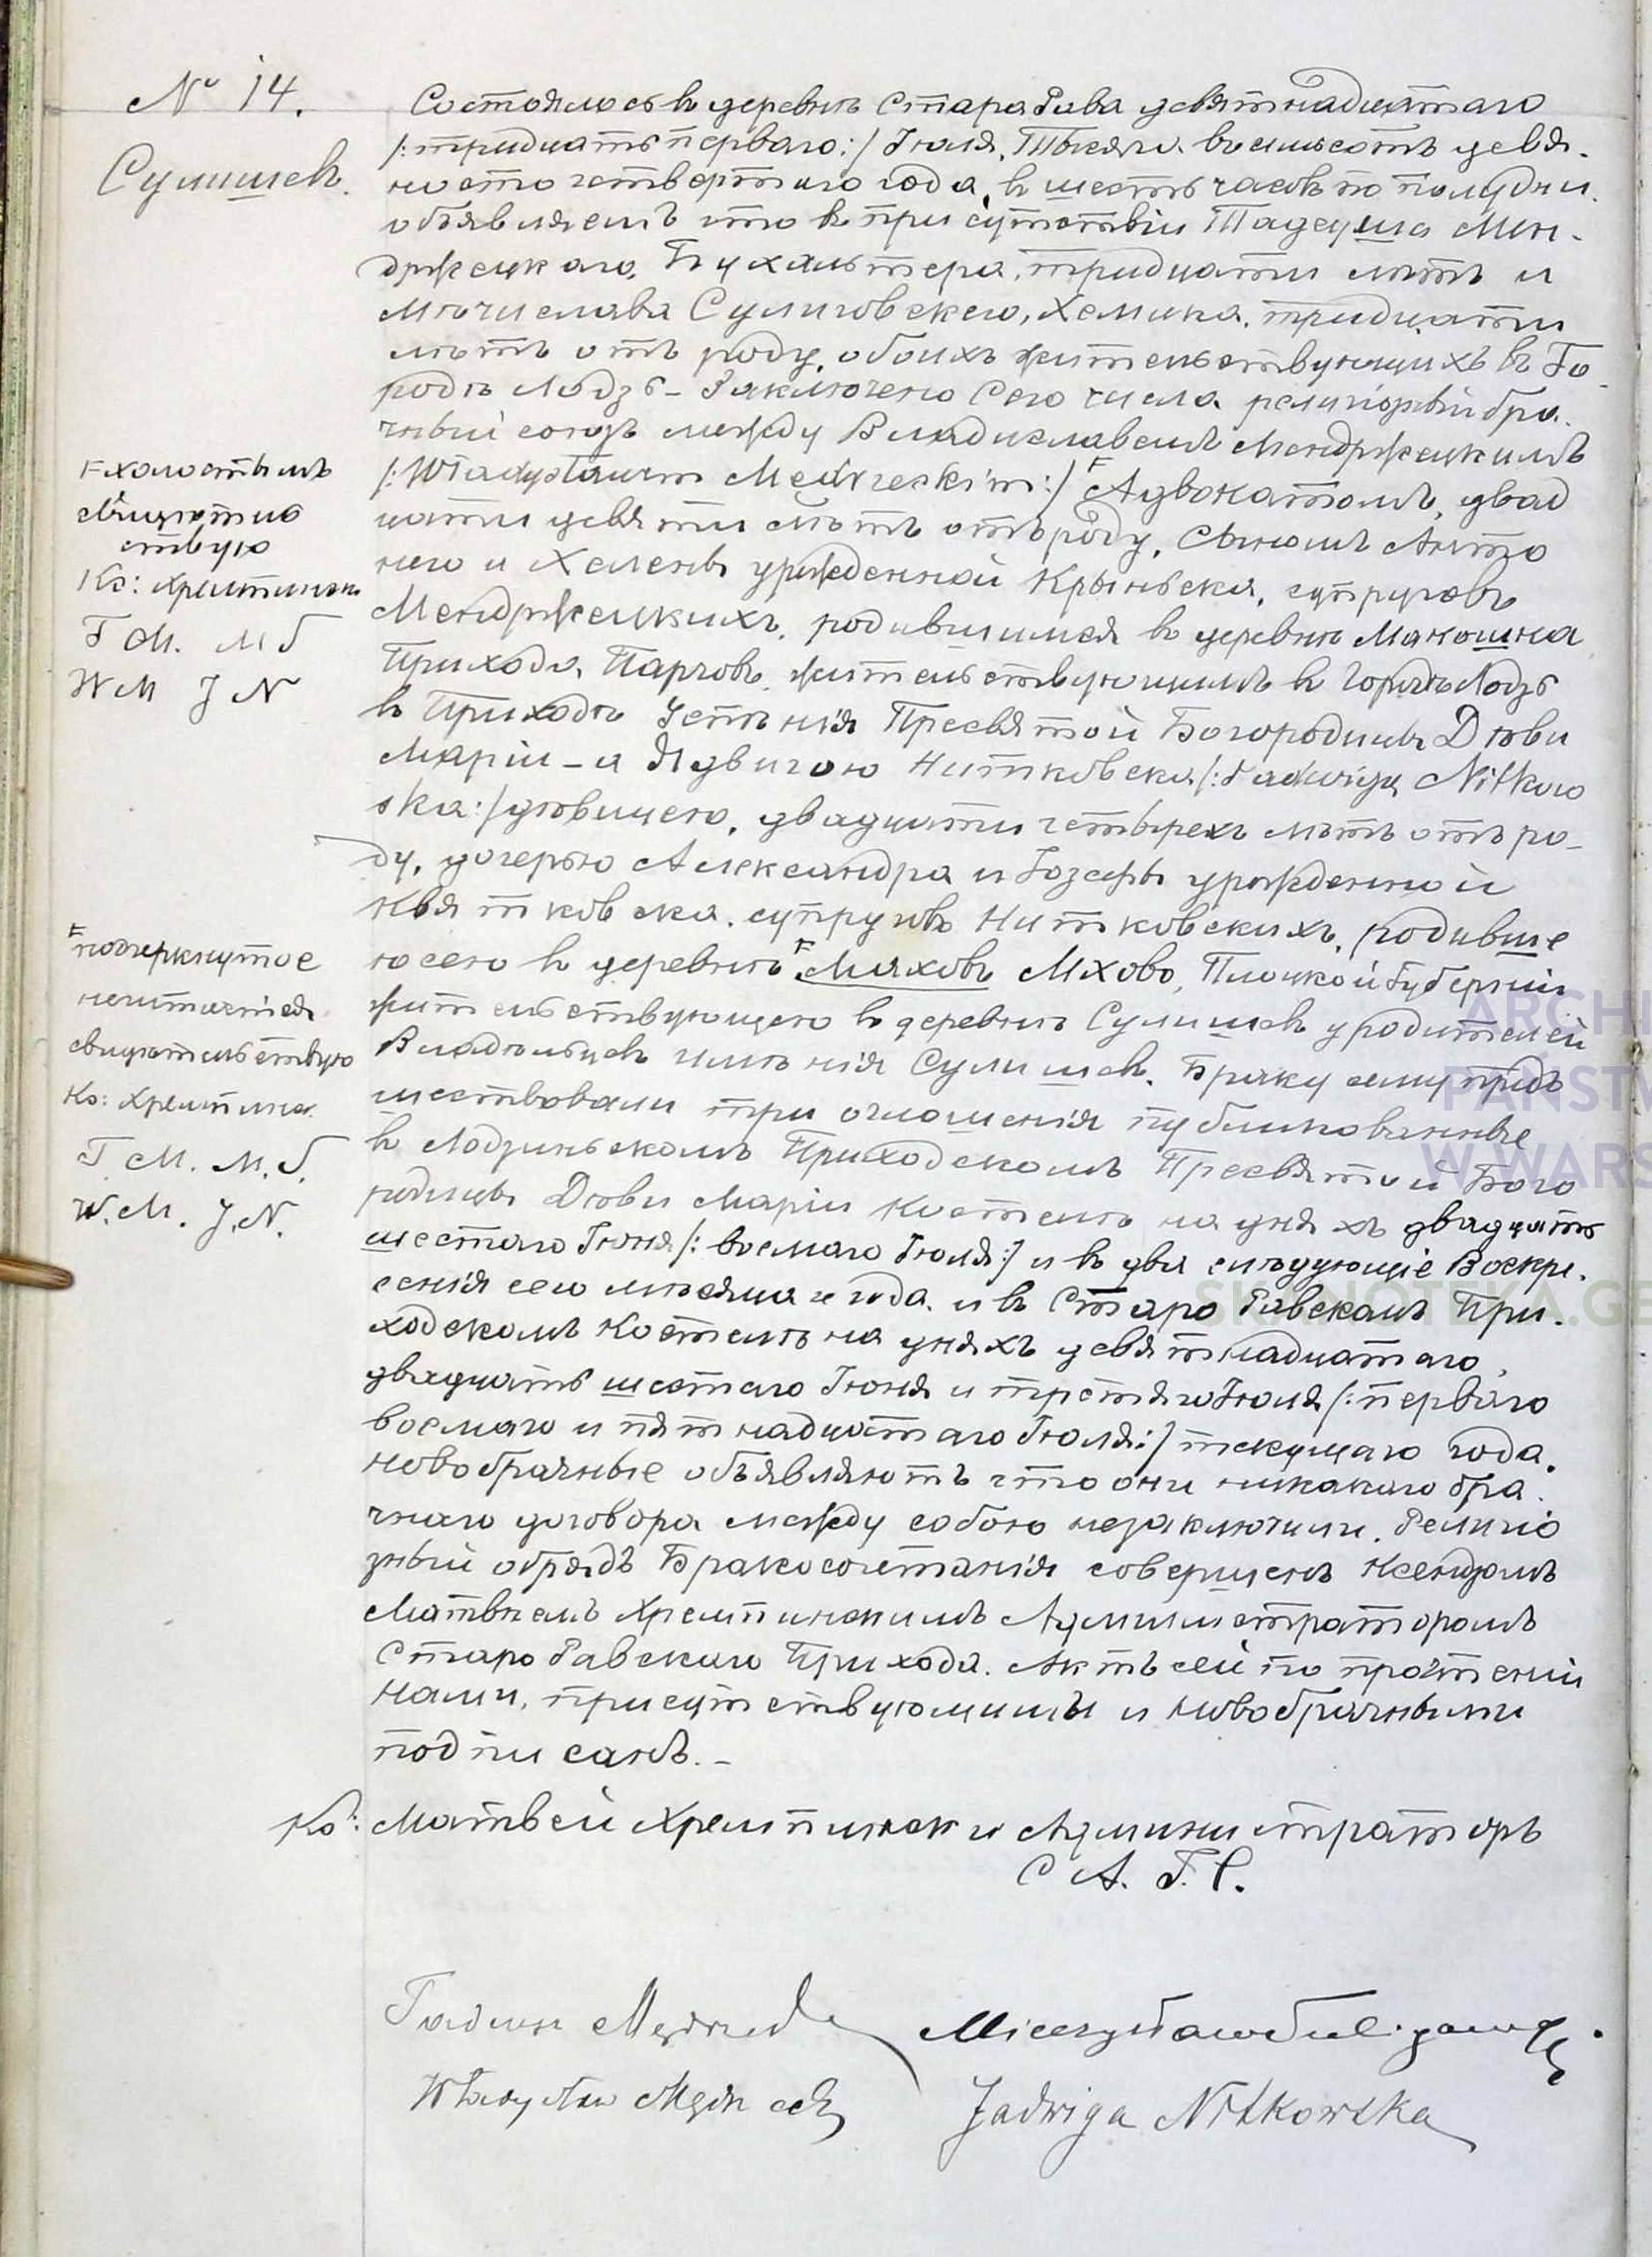 № 14.
Сулишев.
Состоялось в деревне Стара Рава девятнадцатаго
/: тридцать перваго :/ Іюля, Тысяча восемьсотъ девя-
носто четвертаго года, в шесть часовъ по полудни.
объявляемъ что в присутствіи Тадеуша Мен-
држецкаго, Бухальтера, тридцати летъ и
Мечислава Сулиговскего, Хемика, тридцати
летъ отъ роду, обоихъ жительствующихъ въ Го-
роде Лодзь – Заключено Сего числа религіозный бра-
чный союзъ между Владиславемъ Мендржецкимъ
/: Władysławem Mędrzeckim :/ F Адвокатомъ, двад
цати девяти летъ отъ роду, Сыномъ Анто
него и Хелены урожденной Крыньска, супруговъ
Мендржецкихъ, родившимся в деревне Макошка
Прихода Парчовъ, жительствующимъ в Городе Лодзь
в Приходе Успенія Пресвятой Богородицы Девы
Маріи – и Ядвигою Нитковска /: Jadwigą Nitkow
ska :/ девицею, двадцати четырехъ летъ отъ ро-
ду, дочерью Александра и Іозефы урожденной
Квятковска, супруговъ Нитковскихъ, родивше
юсею в деревне F Маховъ Мхово, Плоцкой Губерніи
жительствующею в деревне Сулишев у родителей
Владельцев именія Сулишев. Браку сему пред
шествовали три оглошенія публикованные
в Лодзиньскомъ Приходскомъ Пресвятой Бого
родицы Девы Маріи Костеле на дняхъ двадцать
шестаго Іюня /: восмаго Іюля :/ и в два следующіе Воскре-
сенія сего месяца и года, и в Старо Равскомъ При-
ходскомъ Костеле на дняхъ девятнадцатаго,
двадцать шестаго Іюня и третяго Іюля /: перваго
восмаго и пятнадцатаго Іюля :/ текущаго года.
Новобрачные объявляютъ что они никакого бра-
чнаго договора между собою незаключили. Религіо
зный обрядъ Бракосочетанія совершенъ Ксендзомъ
Матвеемъ Хремпиньскимъ Администраторомъ
Старо Равскаго Прихода. Актъ сей по прочтеніи
нами, присутствующими и новобрачными
подписанъ. –
F холостымъ
свидетель
ствую
Кс: Хремпински
Т М. М S
W M J N
F подчеркнутое
нечитается
свидетельствую
Кс: Хремпинск
T. M. M. S.
W. M. J. N.
Кс: Матвей Хремпински Администраторъ
С А. Г. С.
Tadeusz Mędrzecki Mieczysław Suligowski.
Władysław Mędrzecki Jadwiga Nitkowska
ARCHI
PAŃSTW
W WARS
SKANOTEKA.GE